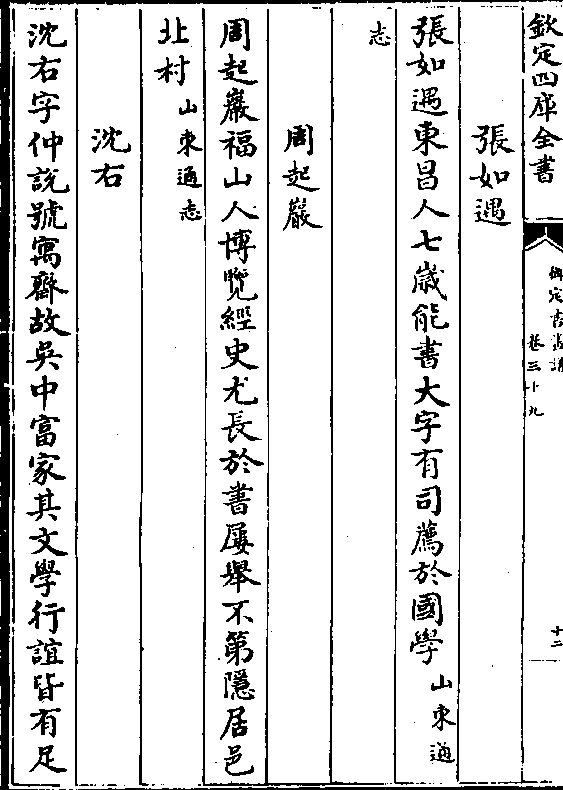 欽定四庫全書
御定書畫譜
卷三十九
十二
張如遇
張如遇東昌人七歲能書大字有司薦於國學山東通
志
周起巖
周起巖福山人博覽經史尤長於書屢舉不第隱居邑
北村山東通志
沈右
沈右字仲說號寓齋故吳中富家其文學行誼皆有足